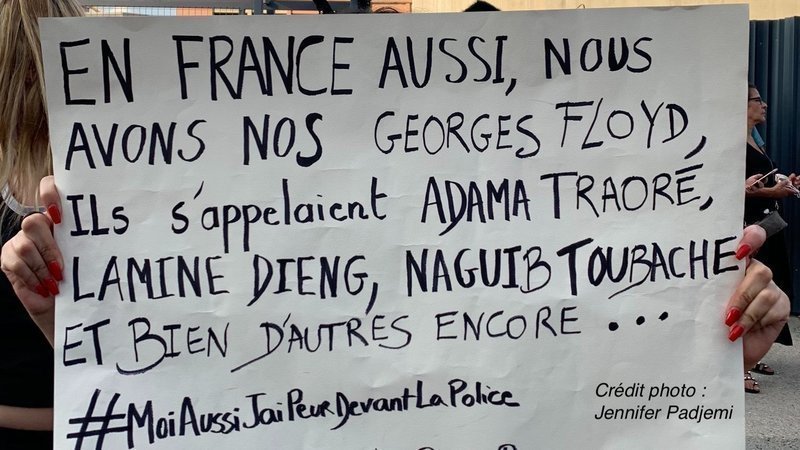 EN FRANCE AUSSI, NOUS
AVONS NOS GEORGES FLOYD,
ILS s'appelaient ADAMA TRAORÉ,
LAMINE DIENG, NAGUIB TOUBACHE
ET BIEN D'AUTRES ENCORE ...
#MoiAussiJaiPeurDevantLaPolice
Crédit photo :
Jennifer Padjemi